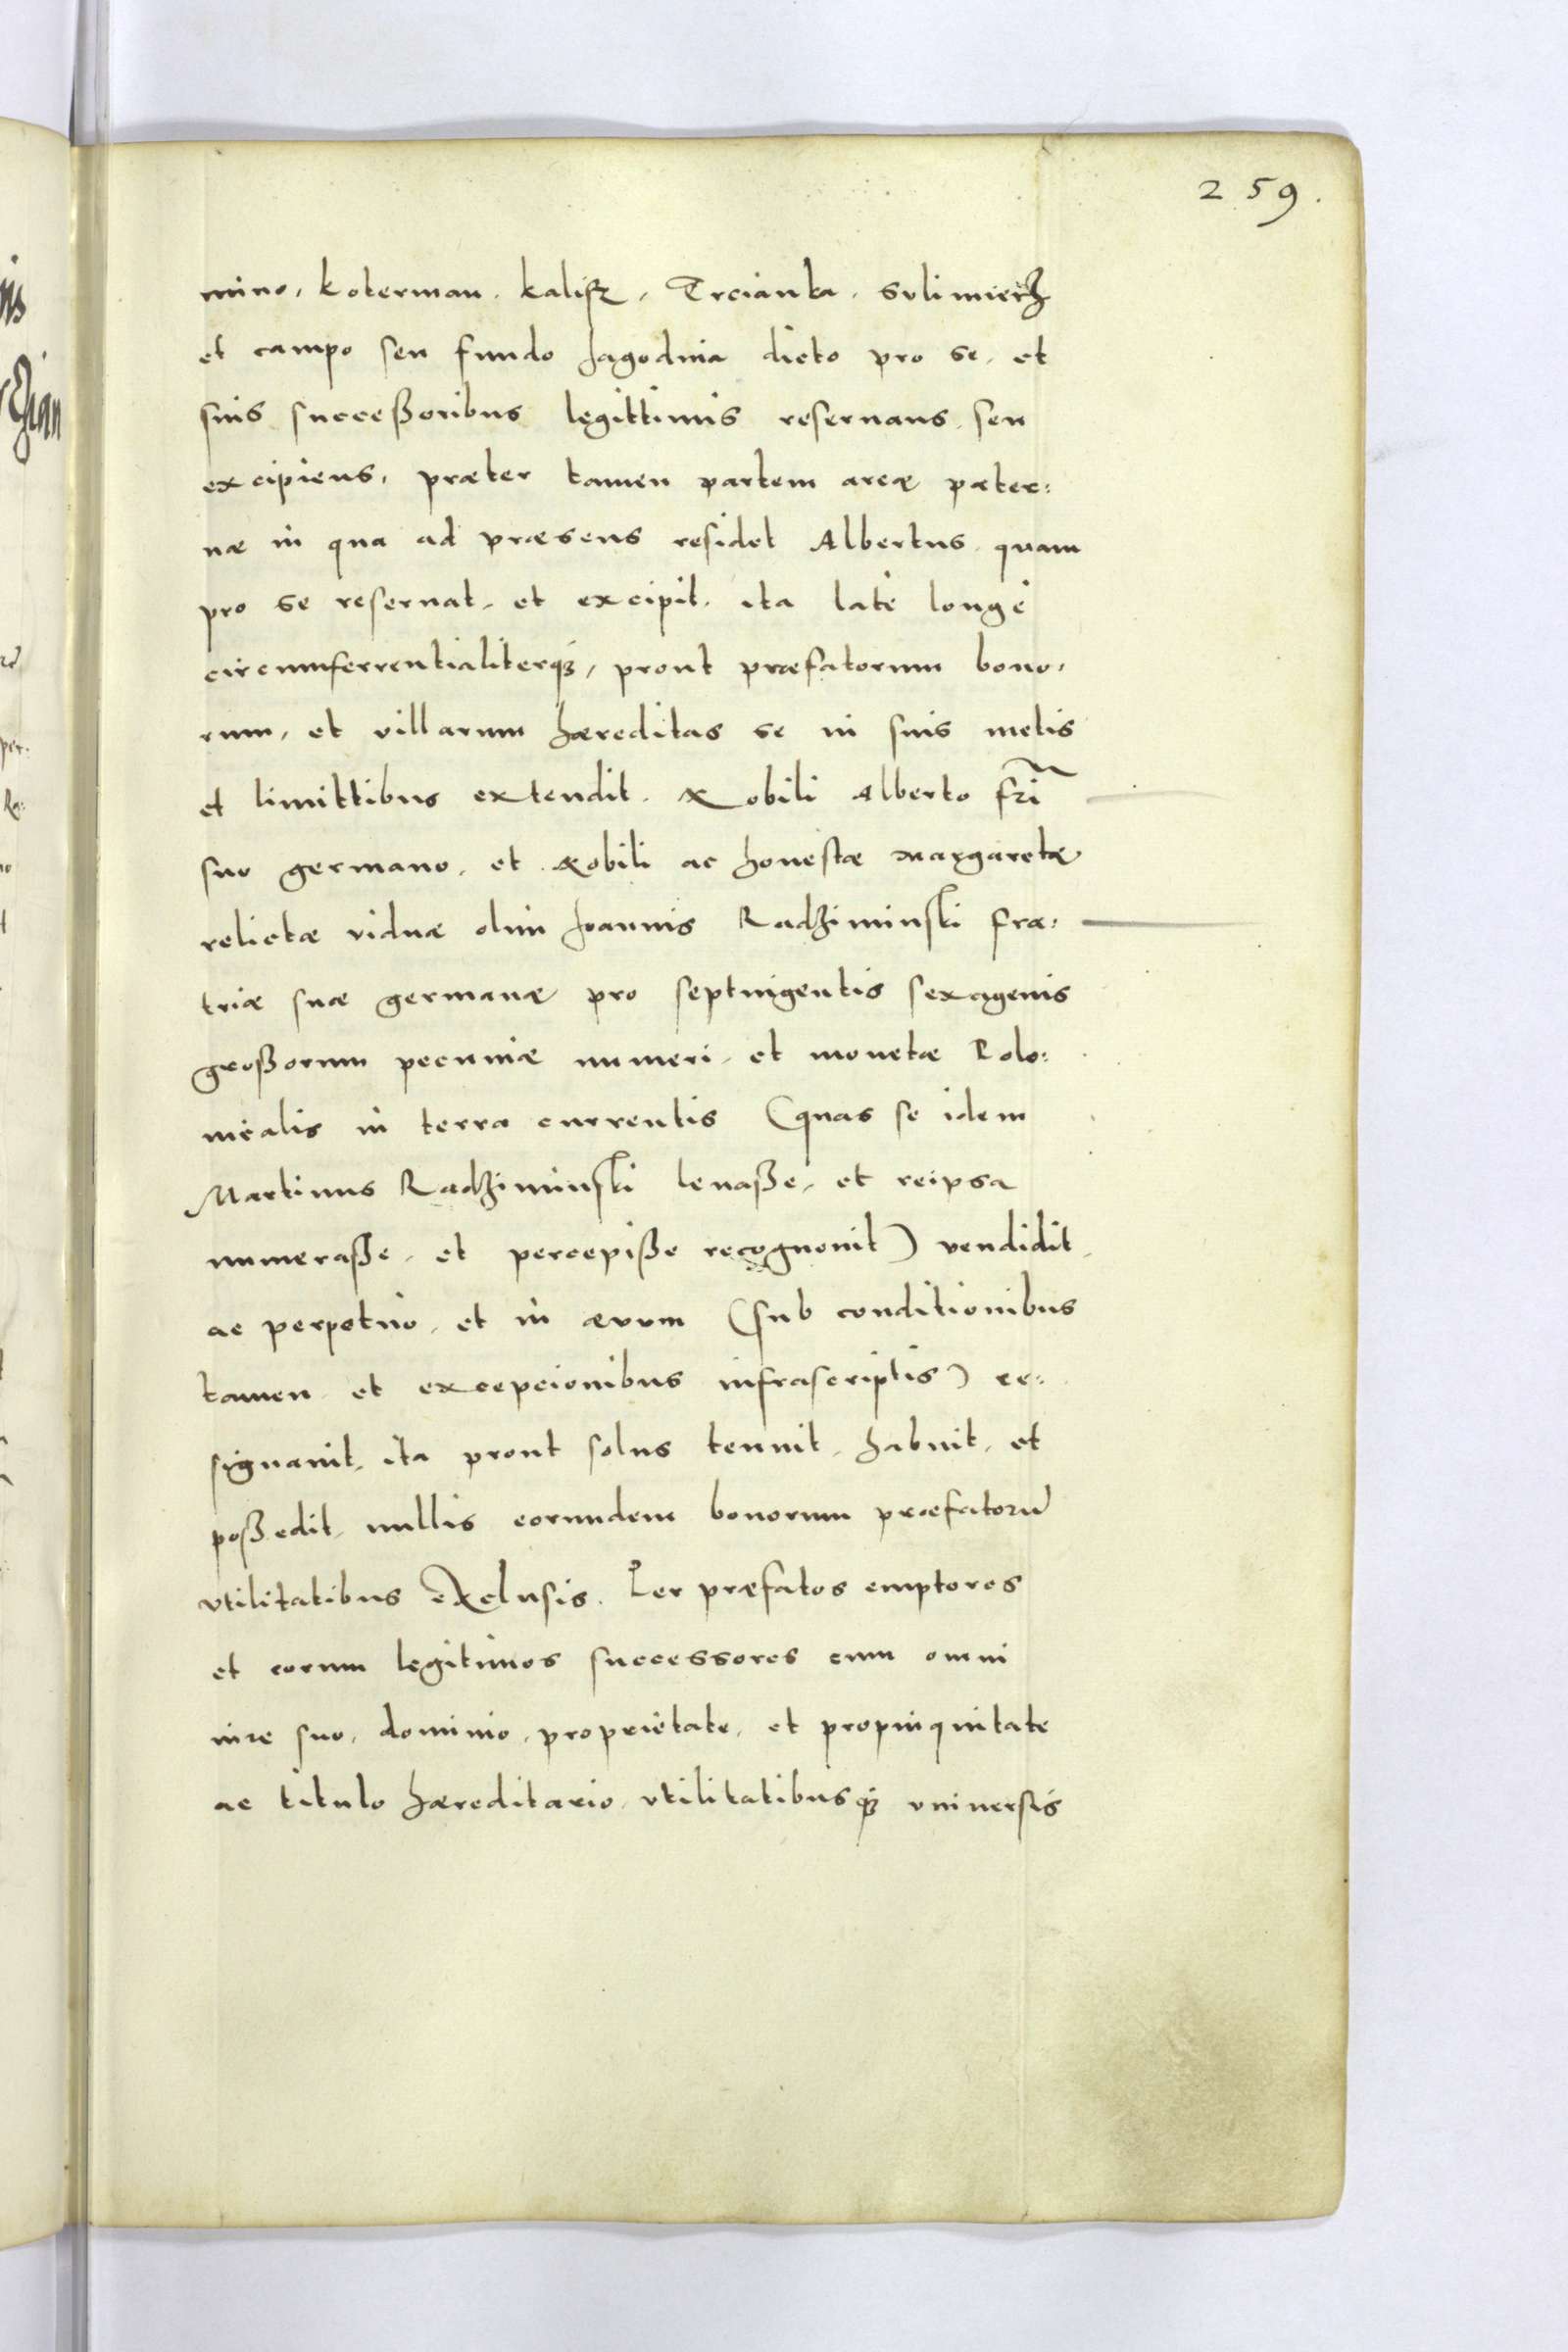 259.
mino, Koterman. Kalisz, Trcianka. Sulimierz
et campo seu fundo Jagodnia dicto pro se, et
suis successoribus legittimis reseruans, seu
excipiens, præter tamen partem areæ pater:
næ in qua ad præsens residet Albertus, quam
pro se reseruat, et excipit, ita late longe
circumferrentialiterq3, prout præfatorum bono,
rum, et villarum hæreditas se in suis metis
et limittibus extendit. Nobili Alberto fr̃i
suo germano, et Nobili ac honestæ Margaretæ
relictæ viduæ olim Joannis Radziminski fra:
triæ suæ germanæ pro septuigentis sexagenis
grossorum pecuniæ numeri, et monetæ Polo:
nicalis in terra currentis (quas se idem
Martinus Radziminski leuasse, et reipsa
numerasse, et percepisse recognouit) vendidit,
ac perpetuo, et in ævum (sub conditionibus
tamen et excepcionibus infrascriptis) re:
signauit, ita prout solus tenuit, habuit, et
possedit, nullis eorundem bonorum præfatorũ
vtilitatibus exclusis. Per præfatos emptores
et eorum legitimos successores cum omni
iure suo, dominio, proprietate, et propinquitate
ac titulo hæreditario, vtilitatibusq3 vniuersis